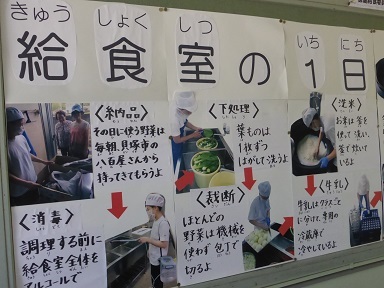 きゅう しょく しつ いち にち
給食室の1日
〈納品〉
その日に使う野菜は
毎朝、貝塚市の
八百屋さんから
持ってきてもらうよ
〈消毒〉
調理する前に
給食室全体を
アルコールで
〈下処理〉
葉ものは
1枚ずつ
はがして洗うよ
〈裁断〉
ほとんどの
野菜は機械を
使わず包丁で
切るよ
〈洗米〉
お米は釜を
使って洗い、
釜で炊いて
いるよ
〈牛乳〉
牛乳はクラスごと
に分けて、専用の
冷蔵庫で
冷やしているよ